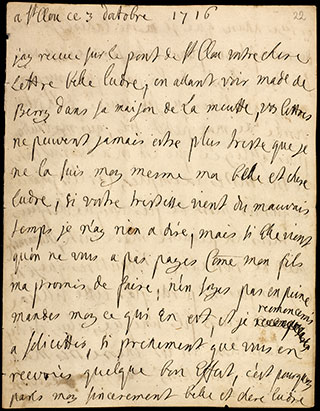 a St Clou ce 3 d'actobre 1716 22
jay receue sur le pont de St Clou vottre chere
Lettre belle Ludre, en allant voir made de
Berry dans sa maison de La meutte, vos lettres
ne peuvent jamais estre plus triste que je
ne la suis moy mesme ma belle et chere
Ludre, si votre tristesse vient du mauvais
temps je n'ay rien a dire, mais si Elle vient
quon ne vous a pas payes Come mon fils
ma promis de faire, n'en soyes pas en peine
mandes moy ce qui En est et je recomanserés
a soliciter, si prechement que vous en
recevrés quelque bon Effect, c'est pourquoy
parlés moy sincerement belle et chere Ludre